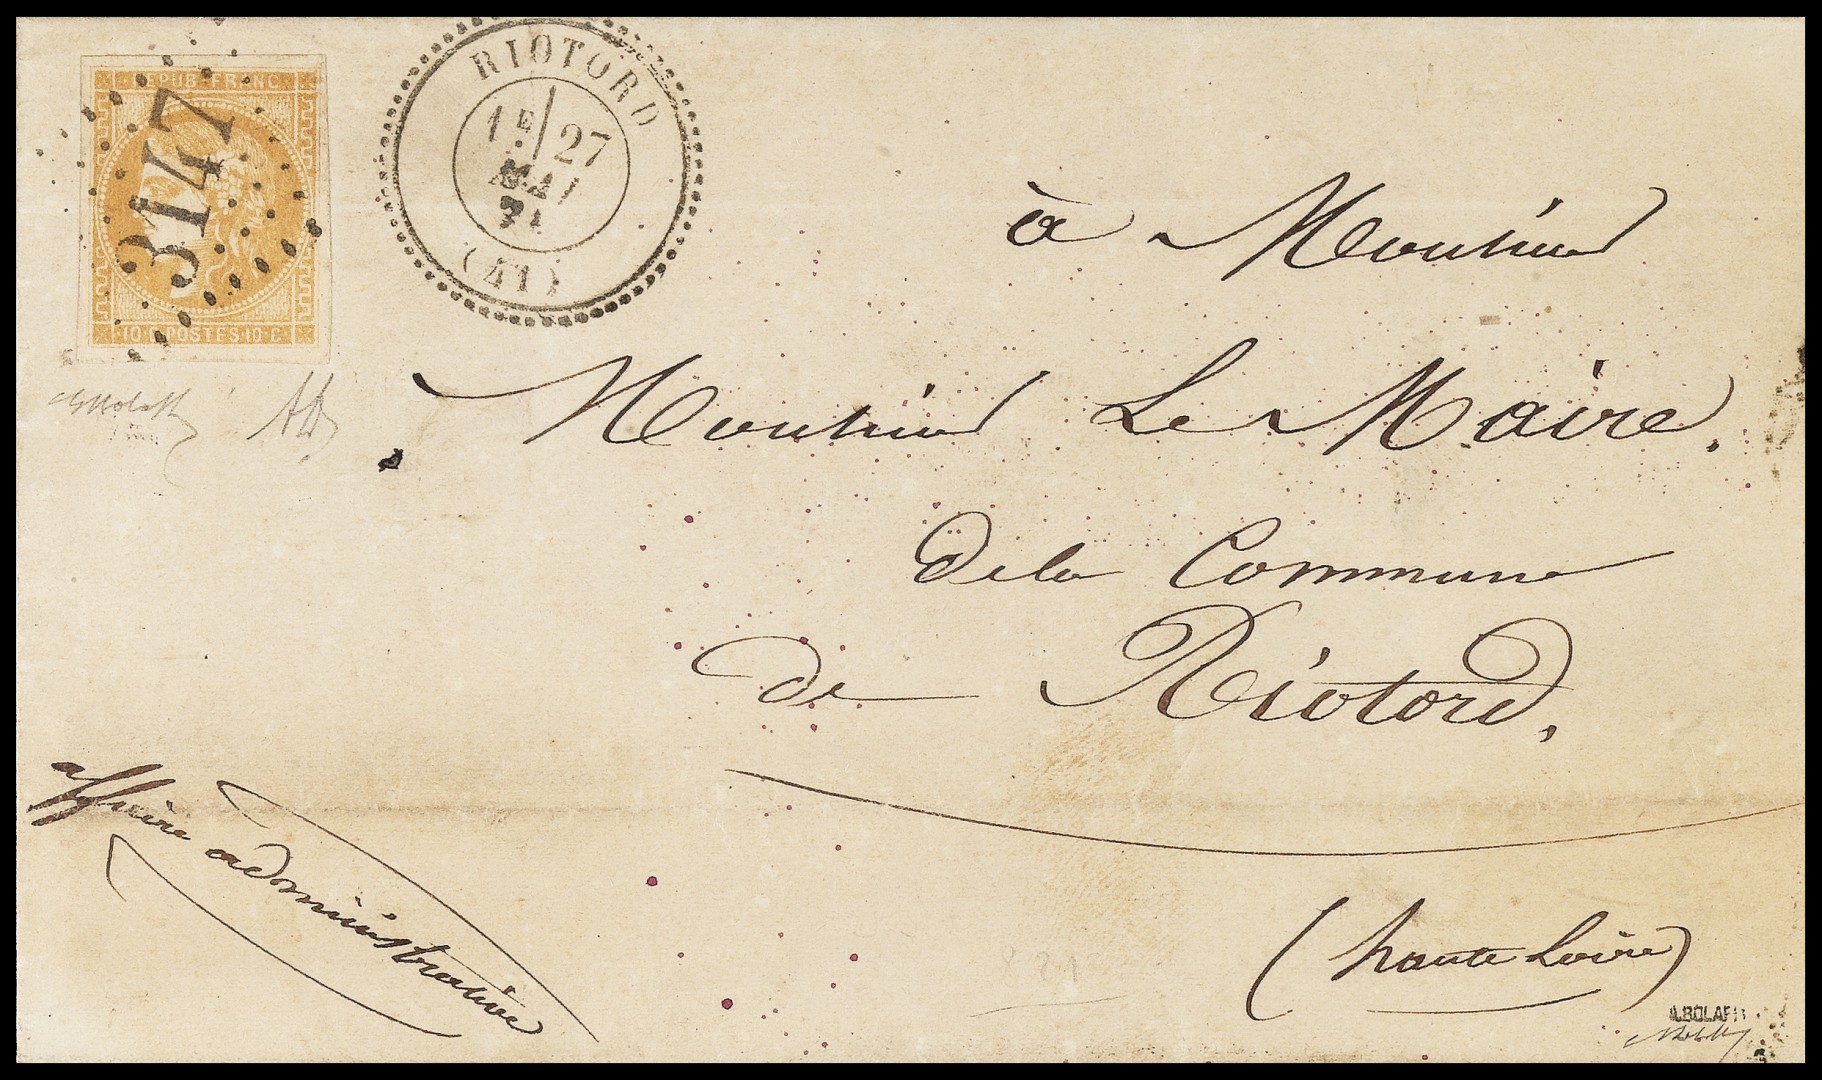 REPUB·FRANC
3147
10·C·POSTES·10·C
RIOTORD
1E 27
MAI
71
(41)
à Monsieur
Monsieur Le Maire.
de la Commune
de Riotord,
affaire administrative
(haute Loire)
A.BOLAFFI